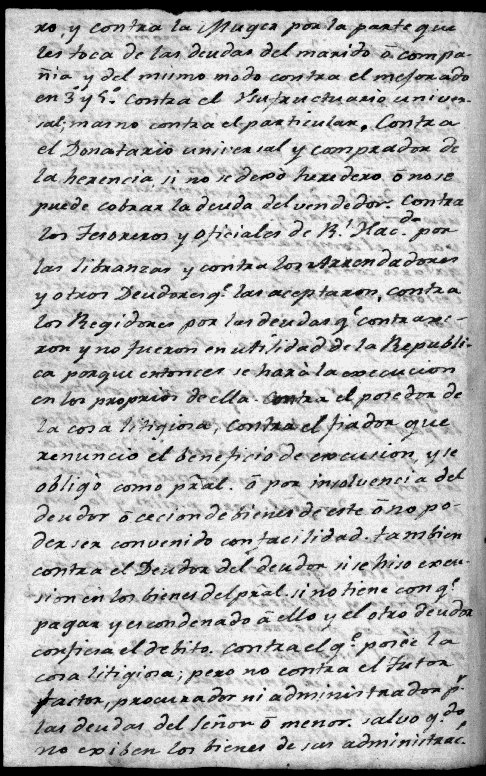 ro, y contra la Muger por la parte que
les toca de las deudas del marido ô compa-
ñia y del mismo modo contra el mejorado
en 3º y 5º contra el Usufructuario univer-
sal; mas no contra el particular. Contra
el Donatario universal y comprador de
la herencia, si no se dexó heredero ô no se
puede cobrar la deuda del vendedor. Contra
los Tesoreros y oficiales de Rˡ Hacᵈᵃ por
las libranzas y contra los Arrendadores
y otros Deudores qᵉ las aceptaron, contra
los Regidores por las deudas qᵉ contraxe-
ron y no fueron en utilidad de la Republi-
ca porque entonces se hará la execucion
en los proprios de ella. contra el posedor de
la cosa litigiosa, contra el fiador que
renunció el beneficio de excusion, y se
obligó como pral. ô por insolvencia del
deudor ô cecion de bienes de este ô no po-
der ser convenido con facilidad. tambien
contra el Deudor del deudor si se hiso excu-
sion en los bienes del pral. si no tiene con qᵉ
pagar y es condenado â ello y el otro deudor
confiesa el debito. contra el qᵉ poseè la
cosa litigiosa; pero no contra el Tutor
factor, procurador ni administrador pʳ
las deudas del Señor ô menor. salvo qᵈᵒ
no exiben los bienes de sus administracˢ